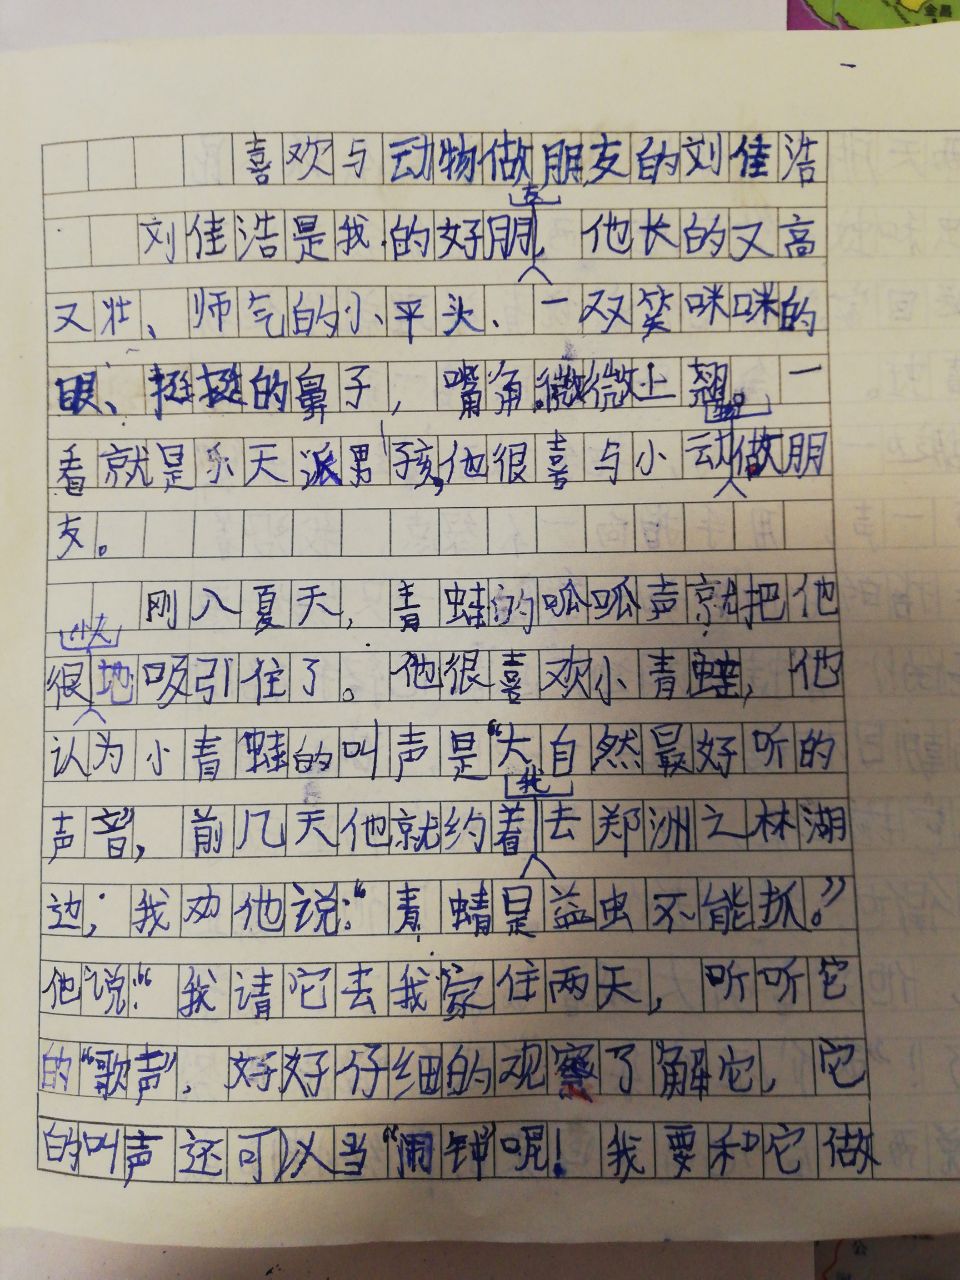 金昌
喜欢与动物做朋友的刘佳浩
刘佳浩是我的好朋友,他长的又高
又壮、师气的小平头、一双笑咪咪的
眼、挺挺的鼻子,嘴角微微上翘。一
看就是乐天派男孩,他很喜与小动物做朋
友。
刚入夏天,青蛙的呱呱声就把他
很地吸引住了。他很喜欢小青蛙,他
认为小青蛙的叫声是“大自然最好听的
声音”,前几天他就约着我去郑洲之林湖
边;我劝他说:“青蜻是益虫不能抓。”
他说:“我请它去我家住两天,听听它
的“歌声”,好好仔细的观察了解它,它
的叫声还可以当“闹钟”呢!我要和它做